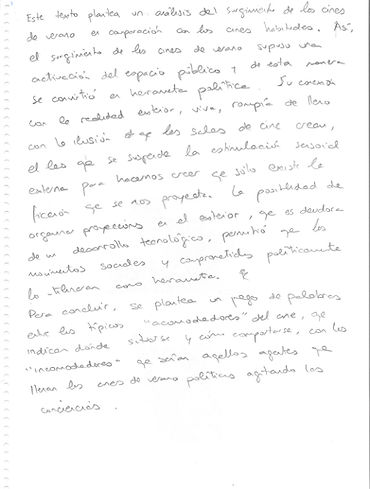 Este texto plantea un análisis del surgimiento de los cines
de verano en comparación con los cines habituales. Así,
el surgimiento de los cines de verano supuso una
activación del espacio público y de esta manera
se convirtió en herramienta política. Su conexión
con la realidad exterior, viva, rompía de lleno
con la ilusión que las salas de cine crean,
en las que se suspende la estimulación sensorial
externa para hacernos creer que sólo existe la
ficción que se nos proyecta. La posibilidad de
organizar proyecciones en el exterior, que es deudora
de un desarrollo tecnológico, permitió que los
movimientos sociales y comprometidos políticamente
lo tuvieran como herramienta.
Para concluir, se plantea un juego de palabras
entre los típicos "acomodadores" del cine, que
indican dónde situarse y cómo comportarse, con los
"incomodadores" que serían aquellos agentes que
llevan los cines de verano políticos agitando las
conciencias.